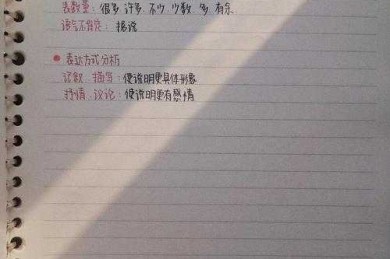 表数量：很多 许多 不少 少数 多 有余
语气不肯定：据说
表达方式分析
记叙 描写：使说明更具体形象
抒情 议论：使说明更有感情